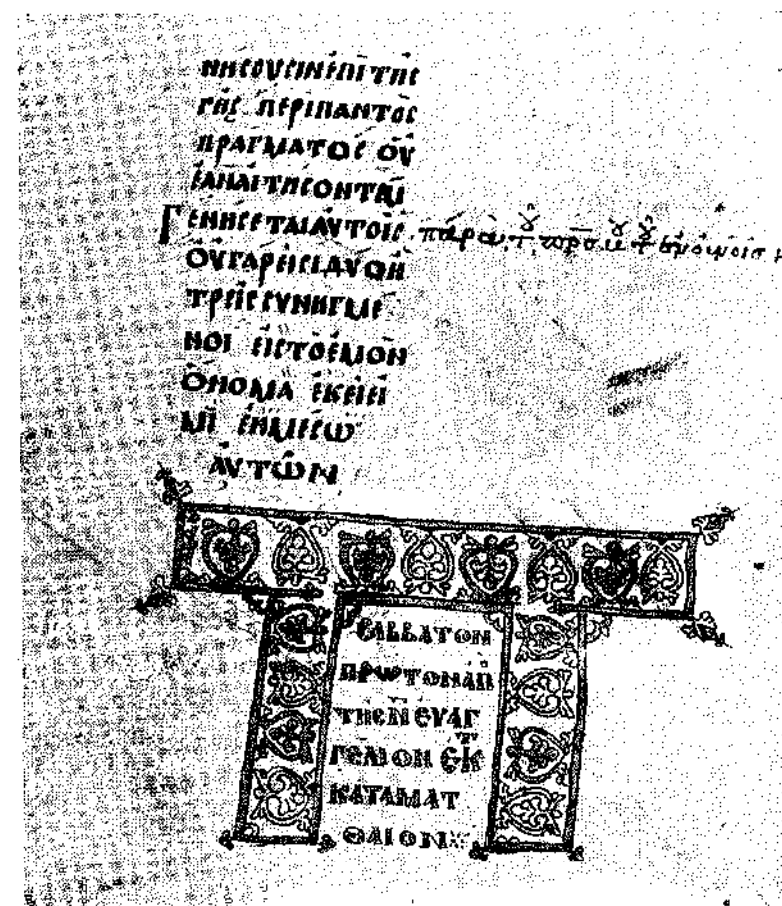 ΝΗϹΟΥϹΙΝΕΠΙΤΗϹ
ΓΗϹ ΠΕΡΙΠΑΝΤΟϹ
ΠΡΑΓΜΑΤΟϹ ΟΥ
ΕΑΝΑΙΤΗϹΟΝΤΑΙ
ΓΕΝΗϹΕΤΑΙΑΥΤΟΙϹ
ΟΥΓΑΡΕΙϹΙΔΥΟΗ
ΤΡΕΙϹϹΥΝΗΓΜΕ
ΝΟΙ ΕΙϹΤΟΕΜΟΝ
ΟΝΟΜΑ ΕΚΕΙΕΙ
ΜΙ ΕΝΜΕϹΩ
ΑΥΤΩΝ
ϹΑΒΒΑΤΟΝ
ΠΡΩΤΟΝΑΠ
ΤΗϹΝ ΕΥΑΓ
ΓΕΛΙΟΝ ΕΚ
ΚΑΤΑΜΑΤ
ΘΑΙΟΝ